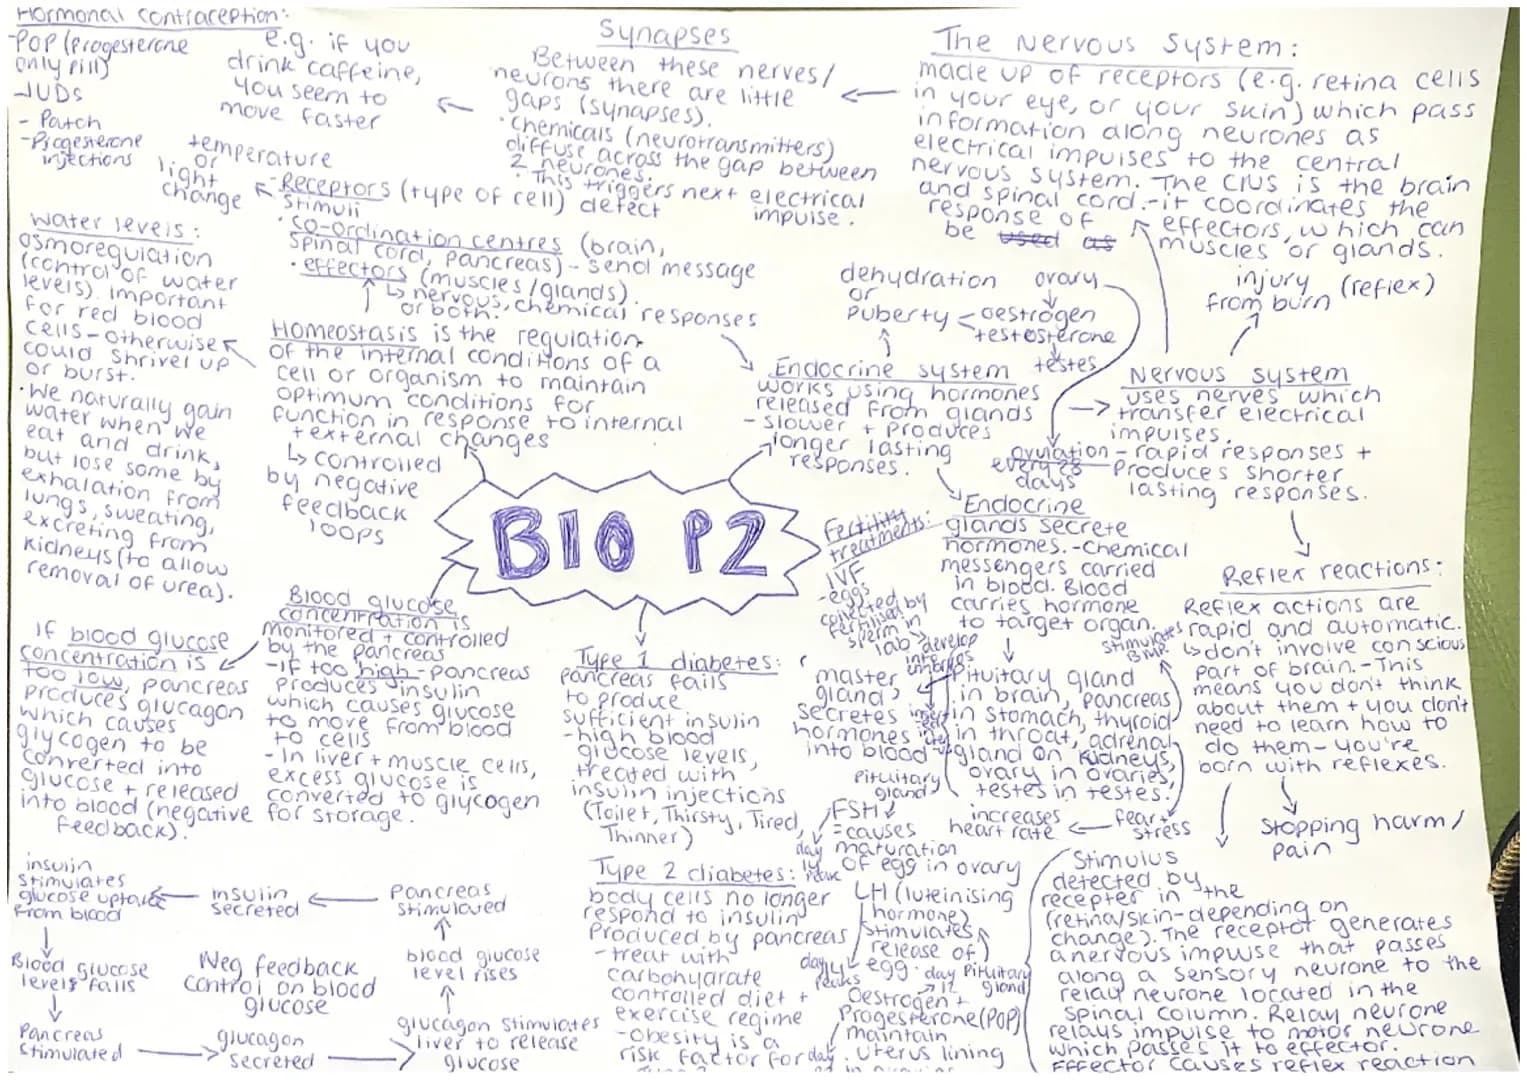 Hormonal contraception:
-POP (Progesterone
only pill)
-IUDs
- Patch
-Progesterone
injections
e.g. if you
drink caffeine,
you seem to
move faster
Synapses
Between these nerves/
neurons there are little
gaps (synapses).
• Chemicals (neurotransmitters)
diffuse across the gap between
2 neurones.
• This triggers next electrical
impulse.
The Nervous System:
made up of receptors (e.g. retina cells
in your eye, or your skin) which pass
information along neurones as
electrical impulses to the central
nervous system. The CNS is the brain
and spinal cord.-it coordinates the
response of effectors, which can
be used as muscles or glands.
temperature
or
light
change
- Receptors (type of cell) detect
stimuli
• co-ordination centres (brain,
spinal cord, pancreas) - send message
• effectors (muscles/glands).
↳ nervous, chemical responses
or both.
Homeostasis is the regulation
of the internal conditions of a
cell or organism to maintain
optimum conditions for
function in response to internal
+ external changes
↳ controlled
by negative
feedback
loops
Water levels:
osmoregulation
(control of water
levels). Important
for red blood
cells - otherwise
could shrivel up
or burst.
• We naturally gain
water when we
eat and drink,
but lose some by
exhalation from
lungs, sweating,
excreting from
kidneys (to allow
removal of urea).
dehydration
or
Puberty
ovary
oestrogen
testosterone
testes
injury (reflex)
from burn
Endocrine system
works using hormones
released from glands
- slower + produces
longer lasting
responses.
ovulation
every 28
days
Nervous system
uses nerves which
transfer electrical
impulses.
- rapid responses +
produces shorter
lasting responses.
BIO P2
Fertility
treatments:
IVF
- eggs
collected by
fertilised by
sperm in
lab → develop
into
embryos
Endocrine
glands secrete
hormones. - Chemical
messengers carried
in blood. Blood
carries hormone
to target organ.
Pituitary gland
in brain, pancreas
in stomach, thyroid
in throat, adrenal
gland on kidneys,
ovary in ovaries,
testes in testes.
master
gland,
secretes
hormones
into blood
stimulates
BMR.
fear +
stress
increases
heart rate
Reflex reactions:
Reflex actions are
rapid and automatic.
↳ don't involve conscious
part of brain. - This
means you don't think
about them + you don't
need to learn how to
do them - you're
born with reflexes.
Stopping harm/
pain
Stimulus
detected by
recepter in the
(retina/skin-depending on
change). The receptor generates
a nervous impulse that passes
along a sensory neurone to the
relay neurone located in the
spinal column. Relay neurone
relays impulse to motor neurone
which passes it to effector.
Effector causes reflex reaction
Blood glucose
concentration is
monitored + controlled
by the pancreas
- If too high - pancreas
produces insulin
which causes glucose
to move from blood
to cells
- In liver + muscle cells,
excess glucose is
converted to glycogen
for storage.
If blood glucose
concentration is
too low, pancreas
produces glucagon
which causes
glycogen to be
converted into
glucose + released
into blood (negative
feedback).
Type 1 diabetes:
pancreas fails
to produce
sufficient insulin
- high blood
glucose levels,
treated with
insulin injections
(Toilet, Thirsty, Tired,
Thinner)
Type 2 diabetes:
body cells no longer
respond to insulin
produced by pancreas
- treat with
carbohydrate
controlled diet +
exercise regime
- obesity is a
risk factor for
Pituitary
gland
FSH
= causes
maturation
of egg in ovary
day
14
LH (luteinising
hormone)
stimulates
release of
egg.
day 14
peaks
Pituitary
gland
Oestrogen +
Progesterone (POP)
maintain
uterus lining
day
insulin
stimulates
glucose uptake
from blood
insulin
secreted
Pancreas
stimulated
blood glucose
level rises
Blood glucose
levels falls
Neg feedback
control on blood
glucose
Pancreas
stimulated
glucagon
secreted
glucagon stimulates
liver to release
glucose